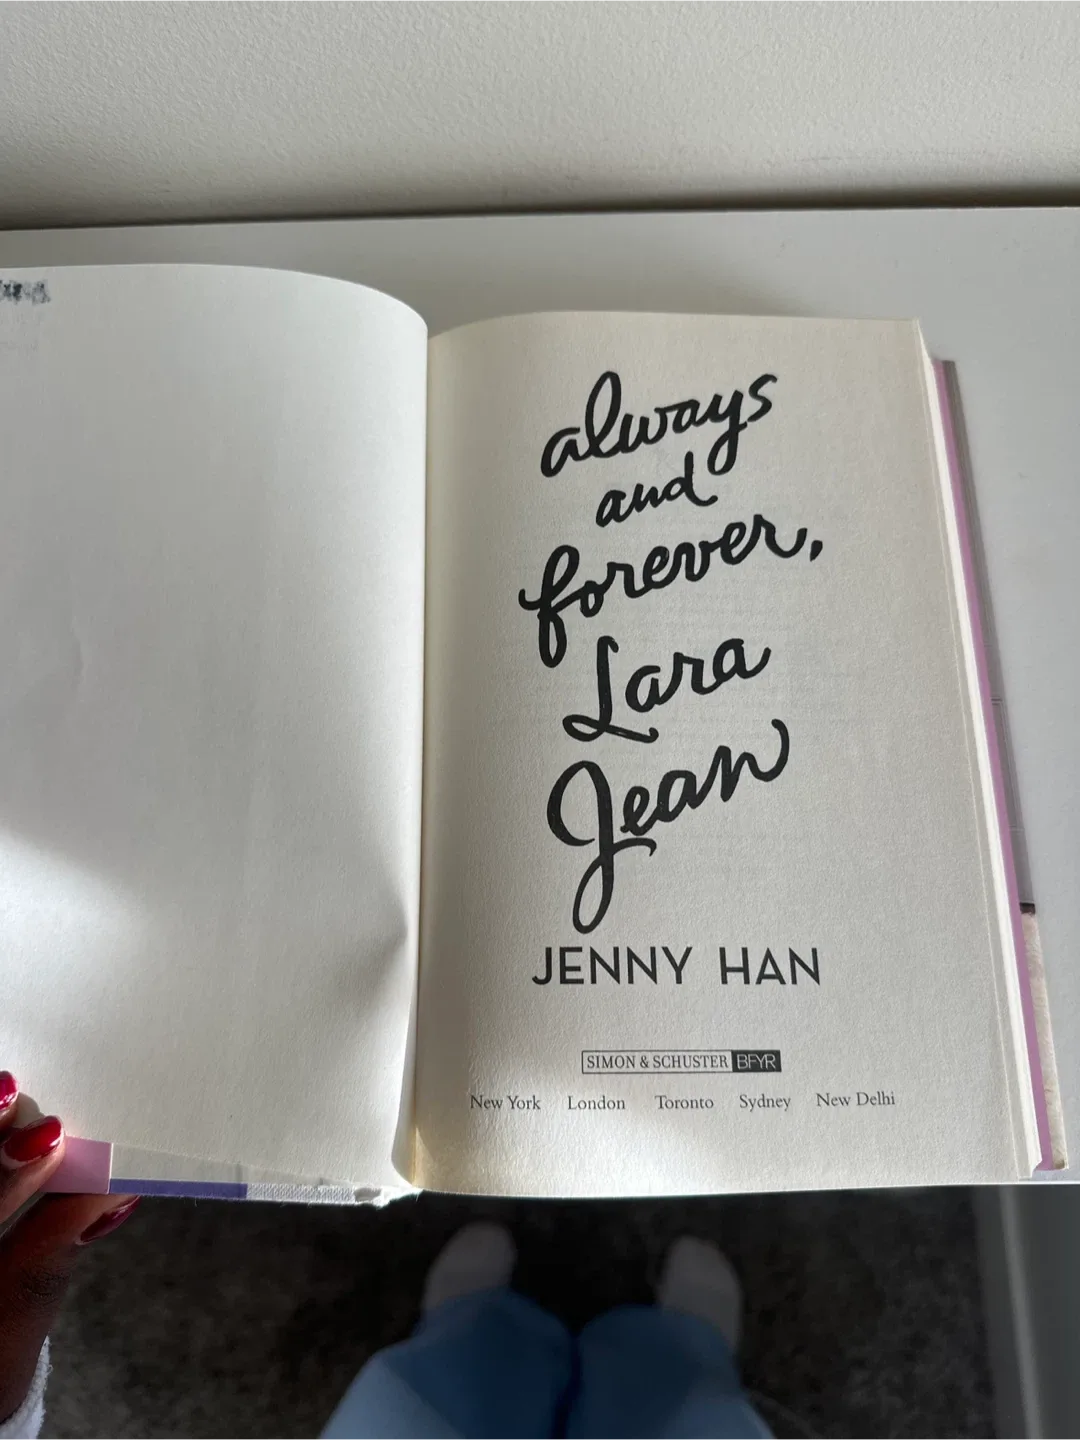 always
and
forever,
Lara
Jean
JENNY HAN
SIMON & SCHUSTER BFYR
New York London Toronto Sydney New Delhi